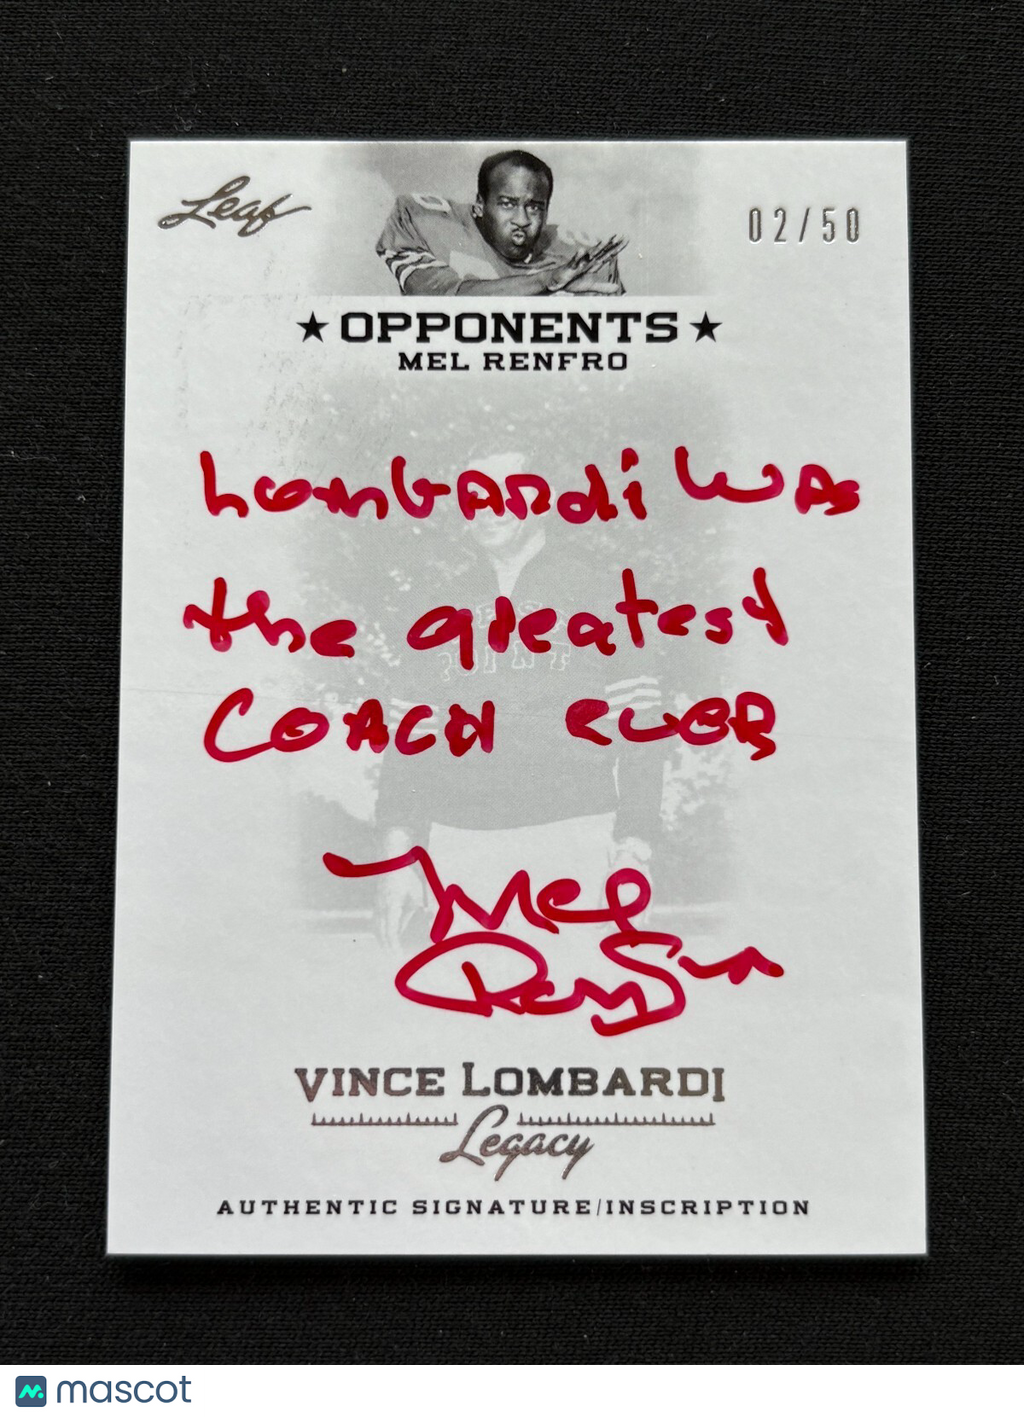 Leaf
02/50
★ OPPONENTS ★
MEL RENFRO
Lombardi was
the greatest
COACH ever
Mel
Renfro
VINCE LOMBARDI
Legacy
AUTHENTIC SIGNATURE/INSCRIPTION
mascot